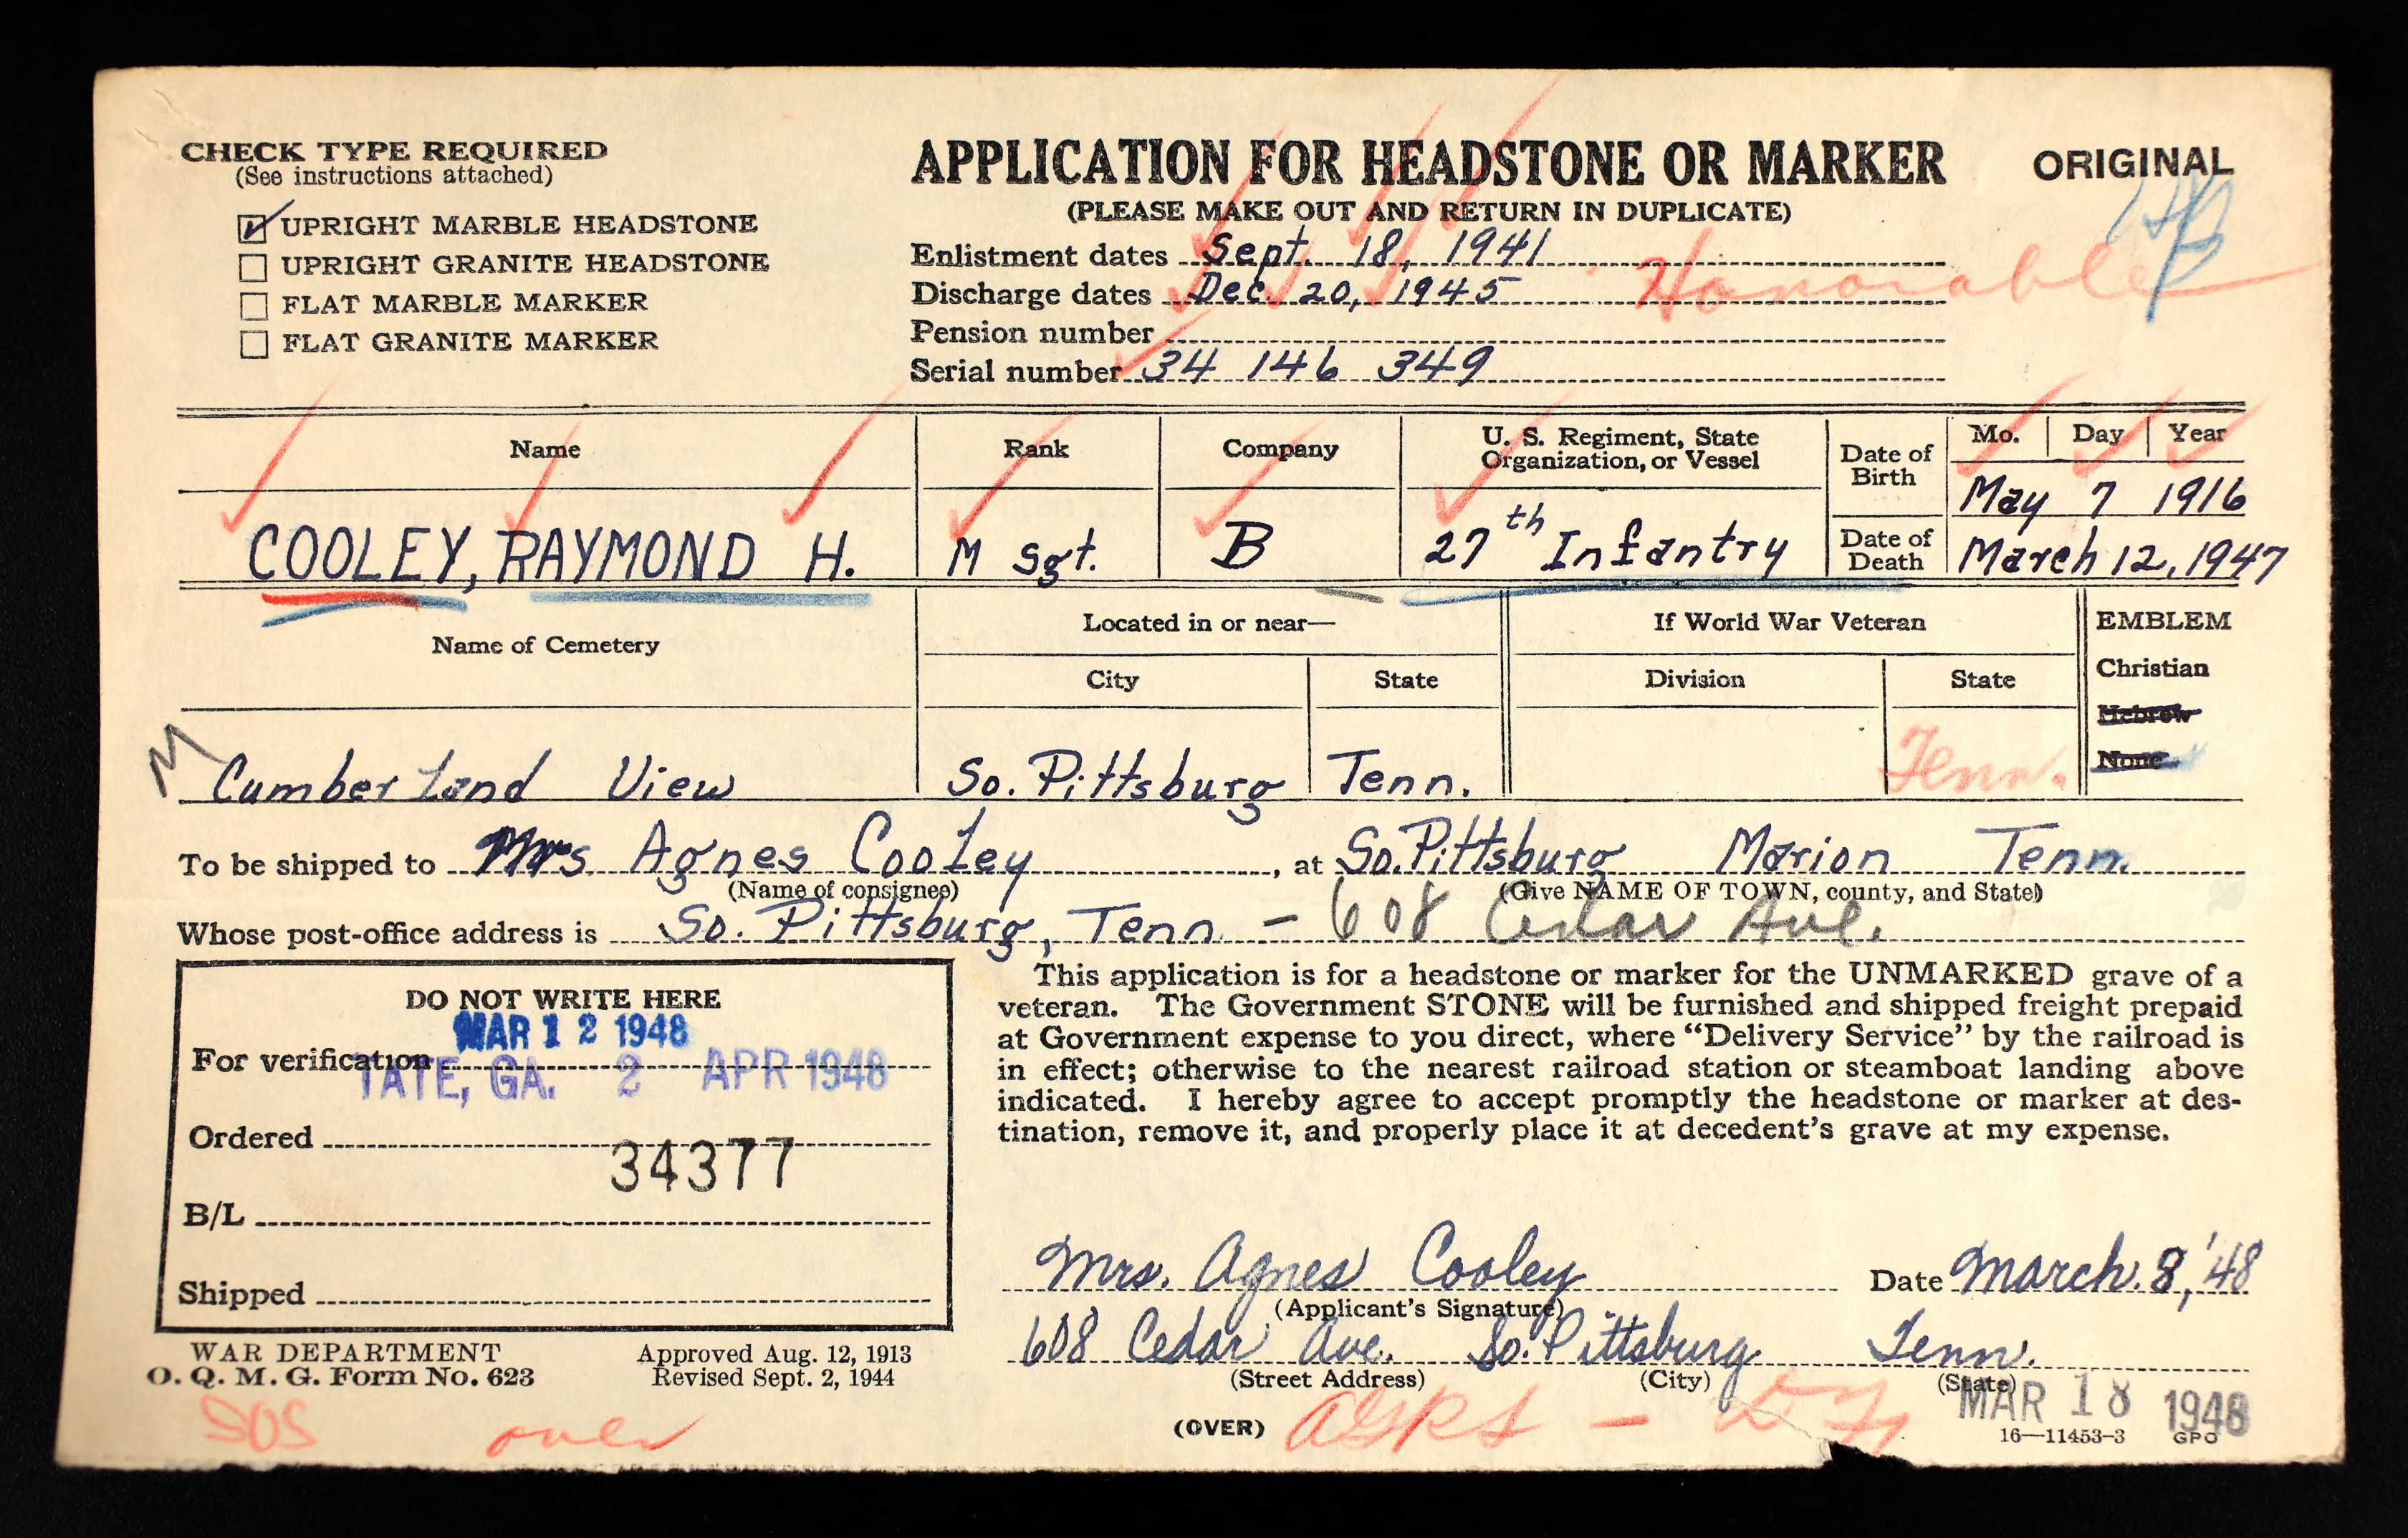 CHECK TYPE REQUIRED
(See instructions attached)
UPRIGHT MARBLE HEADSTONE
UPRIGHT GRANITE HEADSTONE
FLAT MARBLE MARKER
FLAT GRANITE MARKER
APPLICATION FOR HEADSTONE OR MARKER
ORIGINAL
(PLEASE MAKE OUT AND RETURN IN DUPLICATE)
Enlistment dates Sept. 18, 1941
Discharge dates Dec. 20, 1945 Honorable
Pension number
Serial number 34 146 349
Name Rank Company U. S. Regiment, State Organization, or Vessel Date of Birth Mo. Day Year
May 7 1916
COOLEY, RAYMOND H. M Sgt. B 27th Infantry Date of Death March 12, 1947
Name of Cemetery Located in or near— If World War Veteran EMBLEM
City State Division State Christian
Hebrew
None
M Cumberland View So. Pittsburg Tenn. Tenn.
To be shipped to Mrs Agnes Cooley, at So. Pittsburg Marion Tenn.
(Name of consignee) (Give NAME OF TOWN, county, and State)
Whose post-office address is So. Pittsburg, Tenn - 608 Cedar Ave.
DO NOT WRITE HERE
MAR 12 1948
For verification
TATE, GA. 2 APR 1948
Ordered
34377
B/L
Shipped
This application is for a headstone or marker for the UNMARKED grave of a
veteran. The Government STONE will be furnished and shipped freight prepaid
at Government expense to you direct, where "Delivery Service" by the railroad is
in effect; otherwise to the nearest railroad station or steamboat landing above
indicated. I hereby agree to accept promptly the headstone or marker at des-
tination, remove it, and properly place it at decedent's grave at my expense.
Mrs. Agnes Cooley Date March. 8, '48
(Applicant's Signature)
608 Cedar Ave. So. Pittsburg Tenn.
(Street Address) (City) (State)
WAR DEPARTMENT
O. Q. M. G. Form No. 623
Approved Aug. 12, 1913
Revised Sept. 2, 1944
over
(OVER)
MAR 18 1948
16—11453-3 GPO